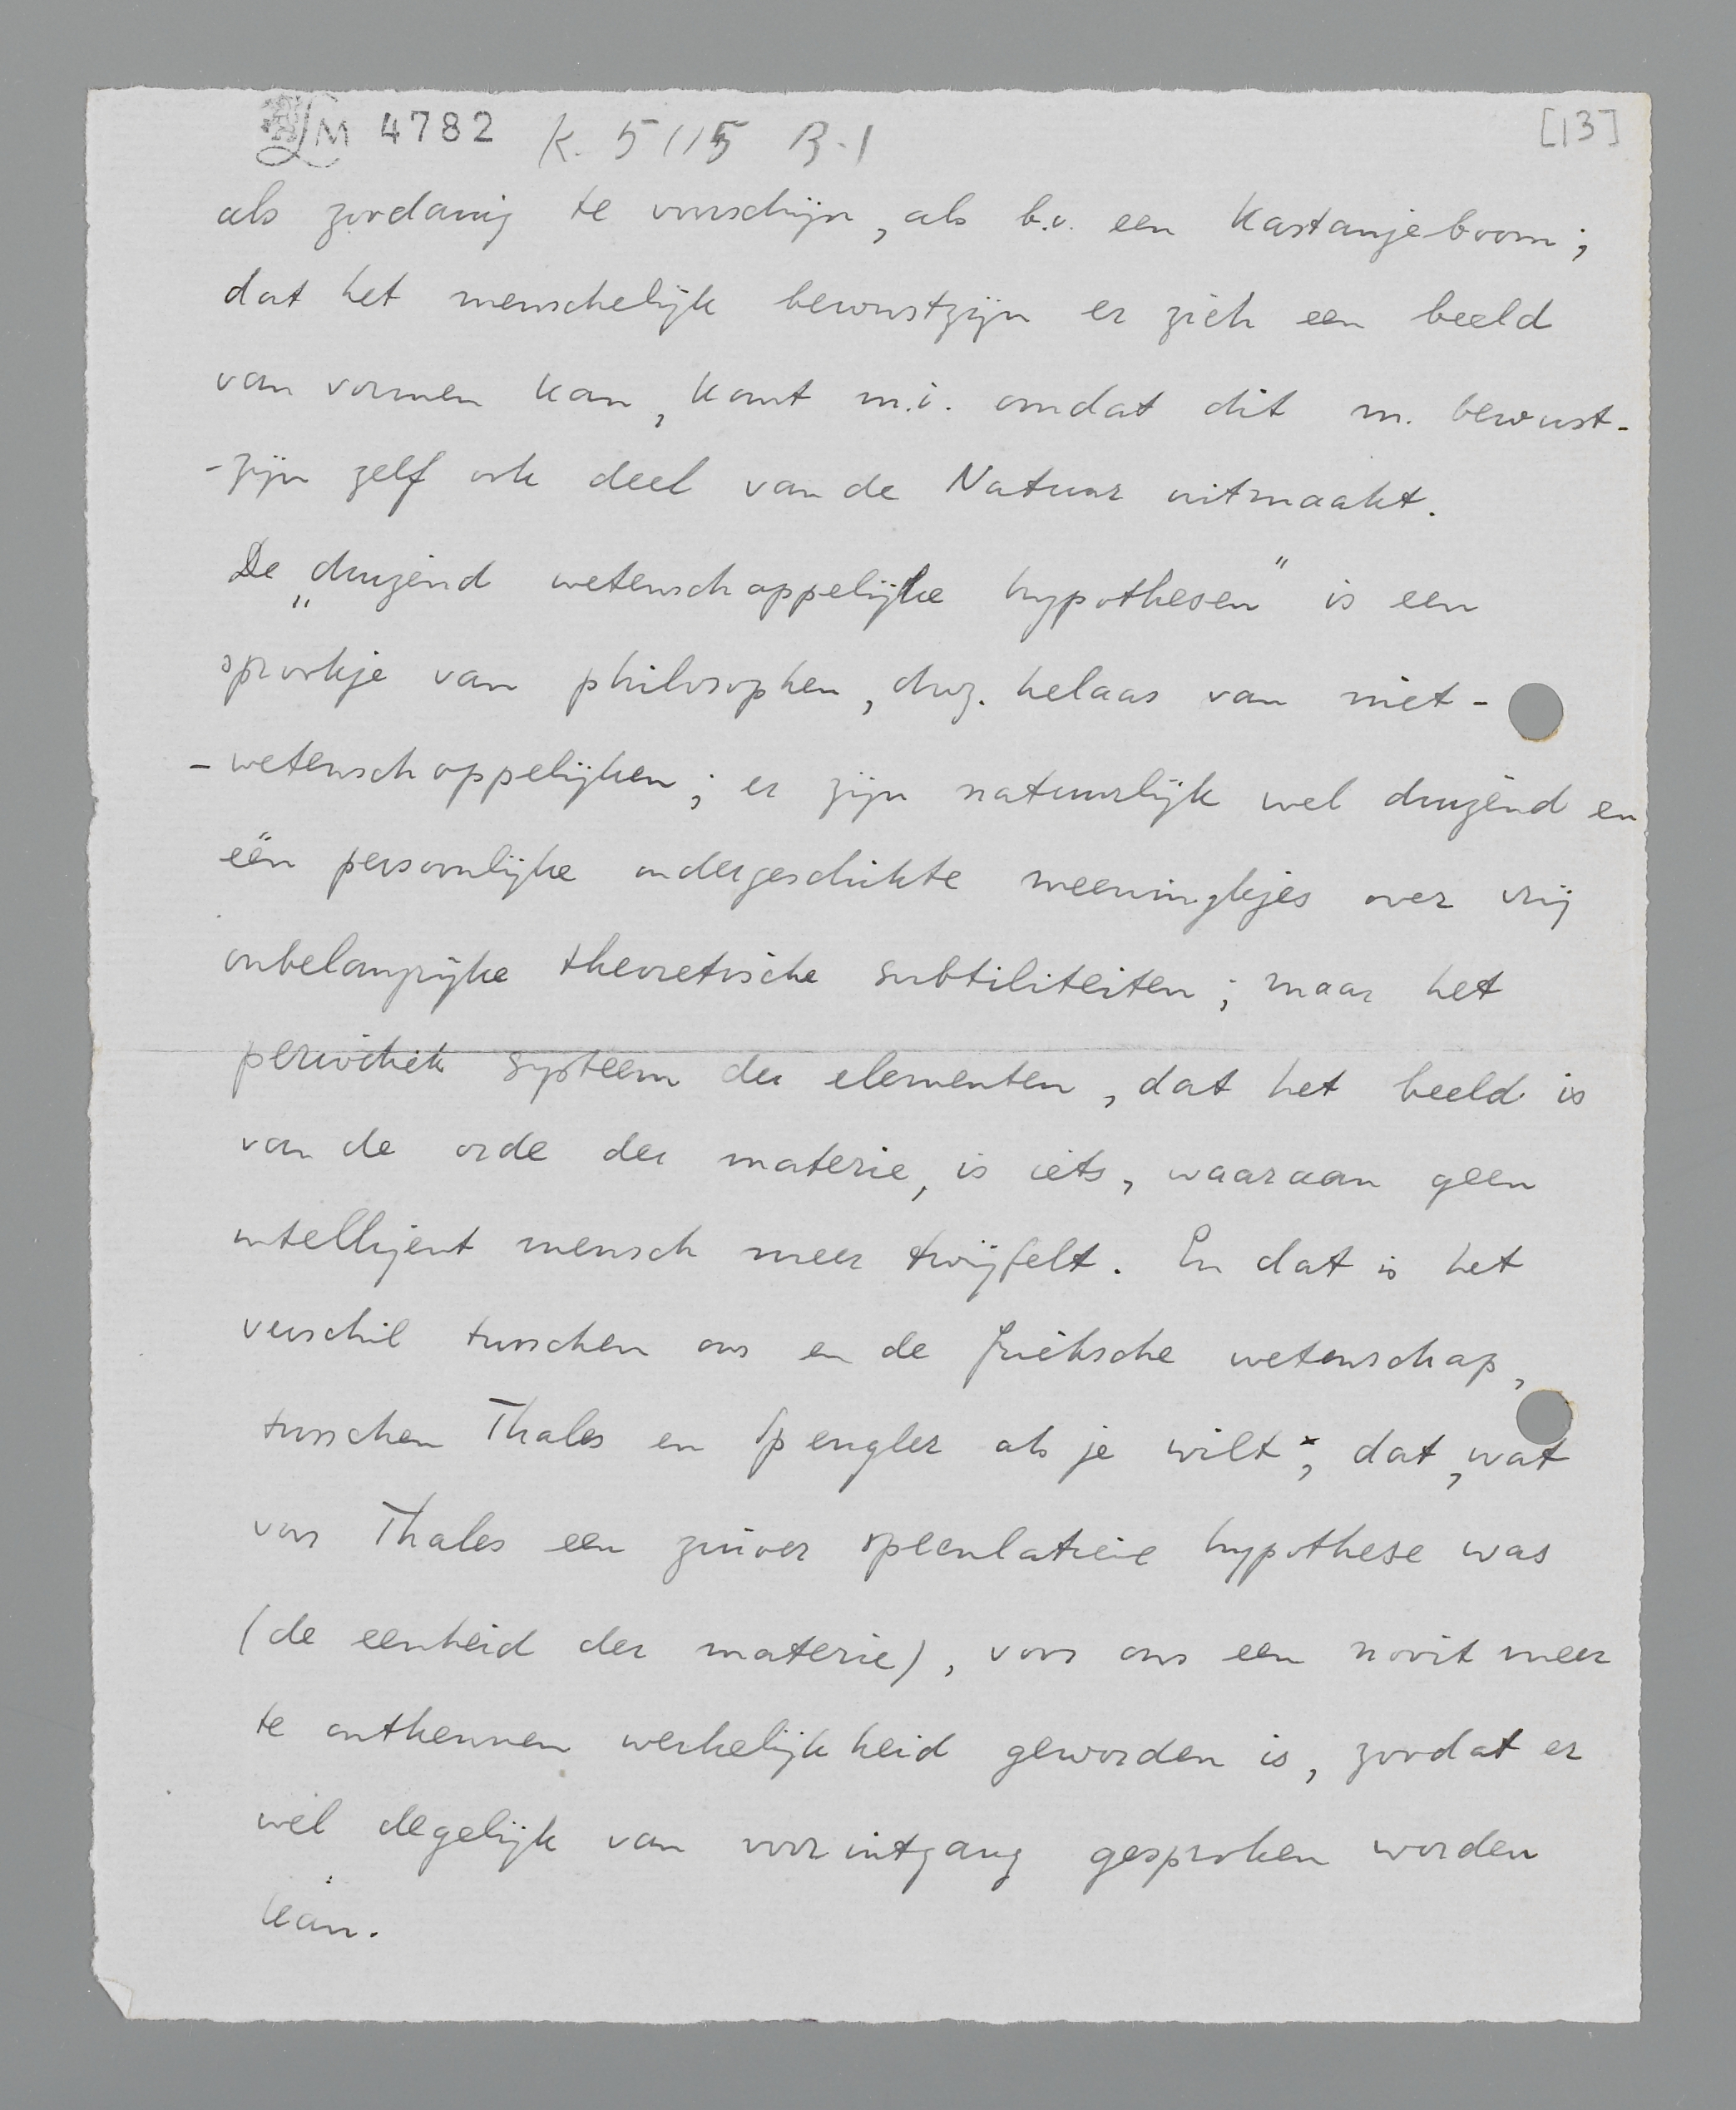 LM 4782 K. 5115 B-1 [13]
als zoodanig te voorschijn, als b.v. een Kastanjeboom;
dat het menschelijk bewustzijn er zich een beeld
van vormen kan, komt m.i. omdat dit m. bewust-
-zijn zelf ook deel van de Natuur uitmaakt.
De „duizend wetenschappelijke hypothesen" is een
sprookje van philosophen, dwz. helaas van niet-
-wetenschappelijken; er zijn natuurlijk wel duizend en
één persoonlijke ondergeschikte meeningkjes over vrij
onbelangrijke theoretische subtiliteiten; maar het
periodiek systeem der elementen, dat het beeld is
van de orde der materie, is iets, waaraan geen
intelligent mensch meer twijfelt. En dat is het
verschil tusschen ons en de Grieksche wetenschap,
tusschen Thales en Spengler als je wilt; dat, wat
voor Thales een zuiver speculatieve hypothese was
(de eenheid der materie), voor ons een nooit meer
te ontkennen werkelijkheid geworden is, zoodat er
wel degelijk van vooruitgang gesproken worden
kan.